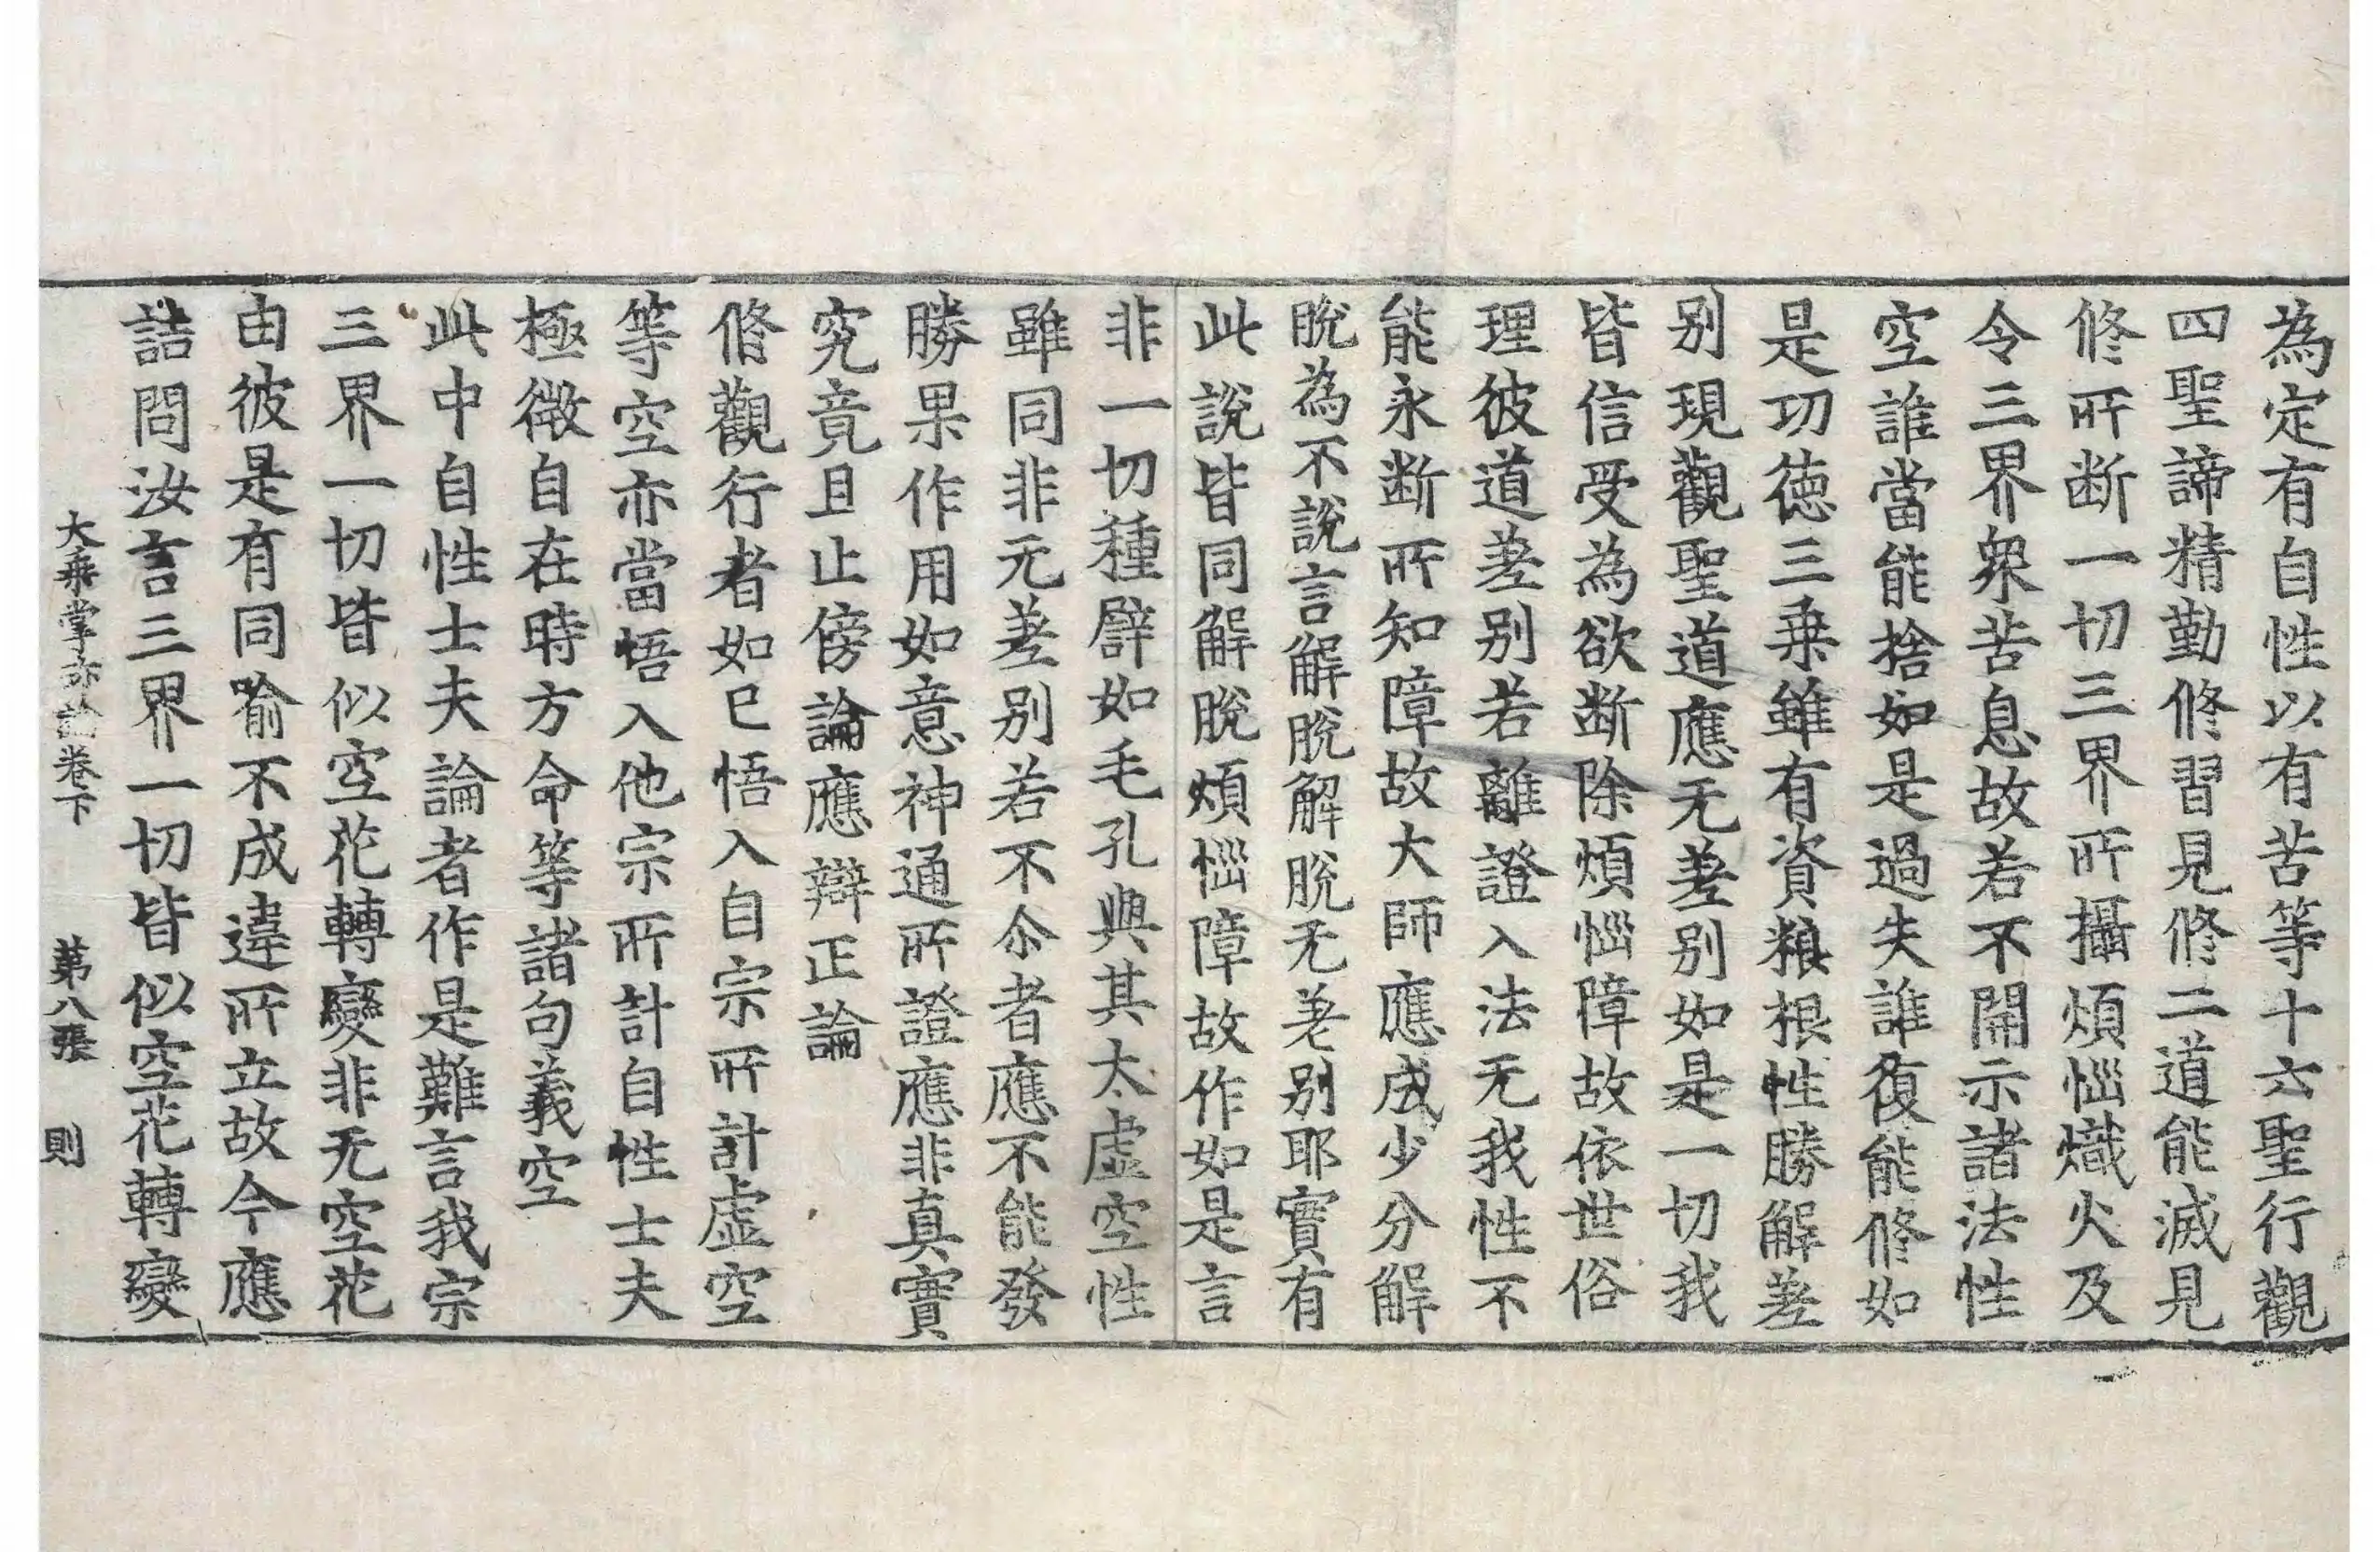 為定有自性以有苦等十六聖行觀
四聖諦精勤修習見修二道能滅見
修所断一切三界所攝煩惱熾火及
令三界衆苦息故若不開示諸法性
空誰當能捨如是過失誰復能修如
是功徳三乗雖有資粮根性勝解差
别現觀聖道應无差别如是一切我
皆信受為欲断除煩惱障故依世俗
理彼道差别若離證入法无我性不
能永断所知障故大師應成少分解
脫為不說言解脫解脫无差别耶實有
此說皆同解脫煩惱障故作如是言
非一切種譬如毛孔與其太虛空性
雖同非无差别若不尒者應不能發
勝果作用如意神通所證應非真實
究竟且止傍論應辯正論
修觀行者如已悟入自宗所計虛空
等空亦當悟入他宗所計自性士夫
極微自在時方命等諸句義空
此中自性士夫論者作是難言我宗
三界一切皆似空花轉變非无空花
由彼是有同喻不成違所立故今應
詰問汝言三界一切皆似空花轉變
大乗掌珎論卷下　第八張　則